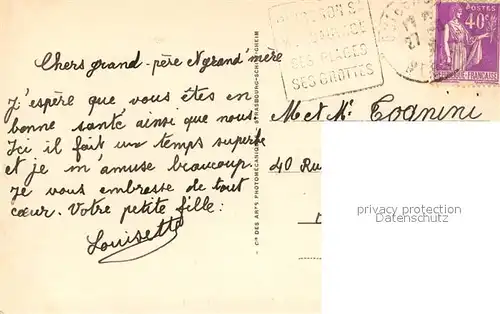 Chers grand-père & grand'mère
J'espère que vous êtes en
bonne santé ainsi que nous
Ici il fait un temps superbe
et je m'amuse beaucoup.
Je vous embrasse de tout
cœur. Votre petite fille:
Louisette
Cie DES ARTS PHOTOMÉCANIQUES STRASBOURG-SCHILTIGHEIM
SES PLAGES
SES GROTTES
POSTES
40c
M et Me Tognini
40 Ru
privacy protection
Datenschutz